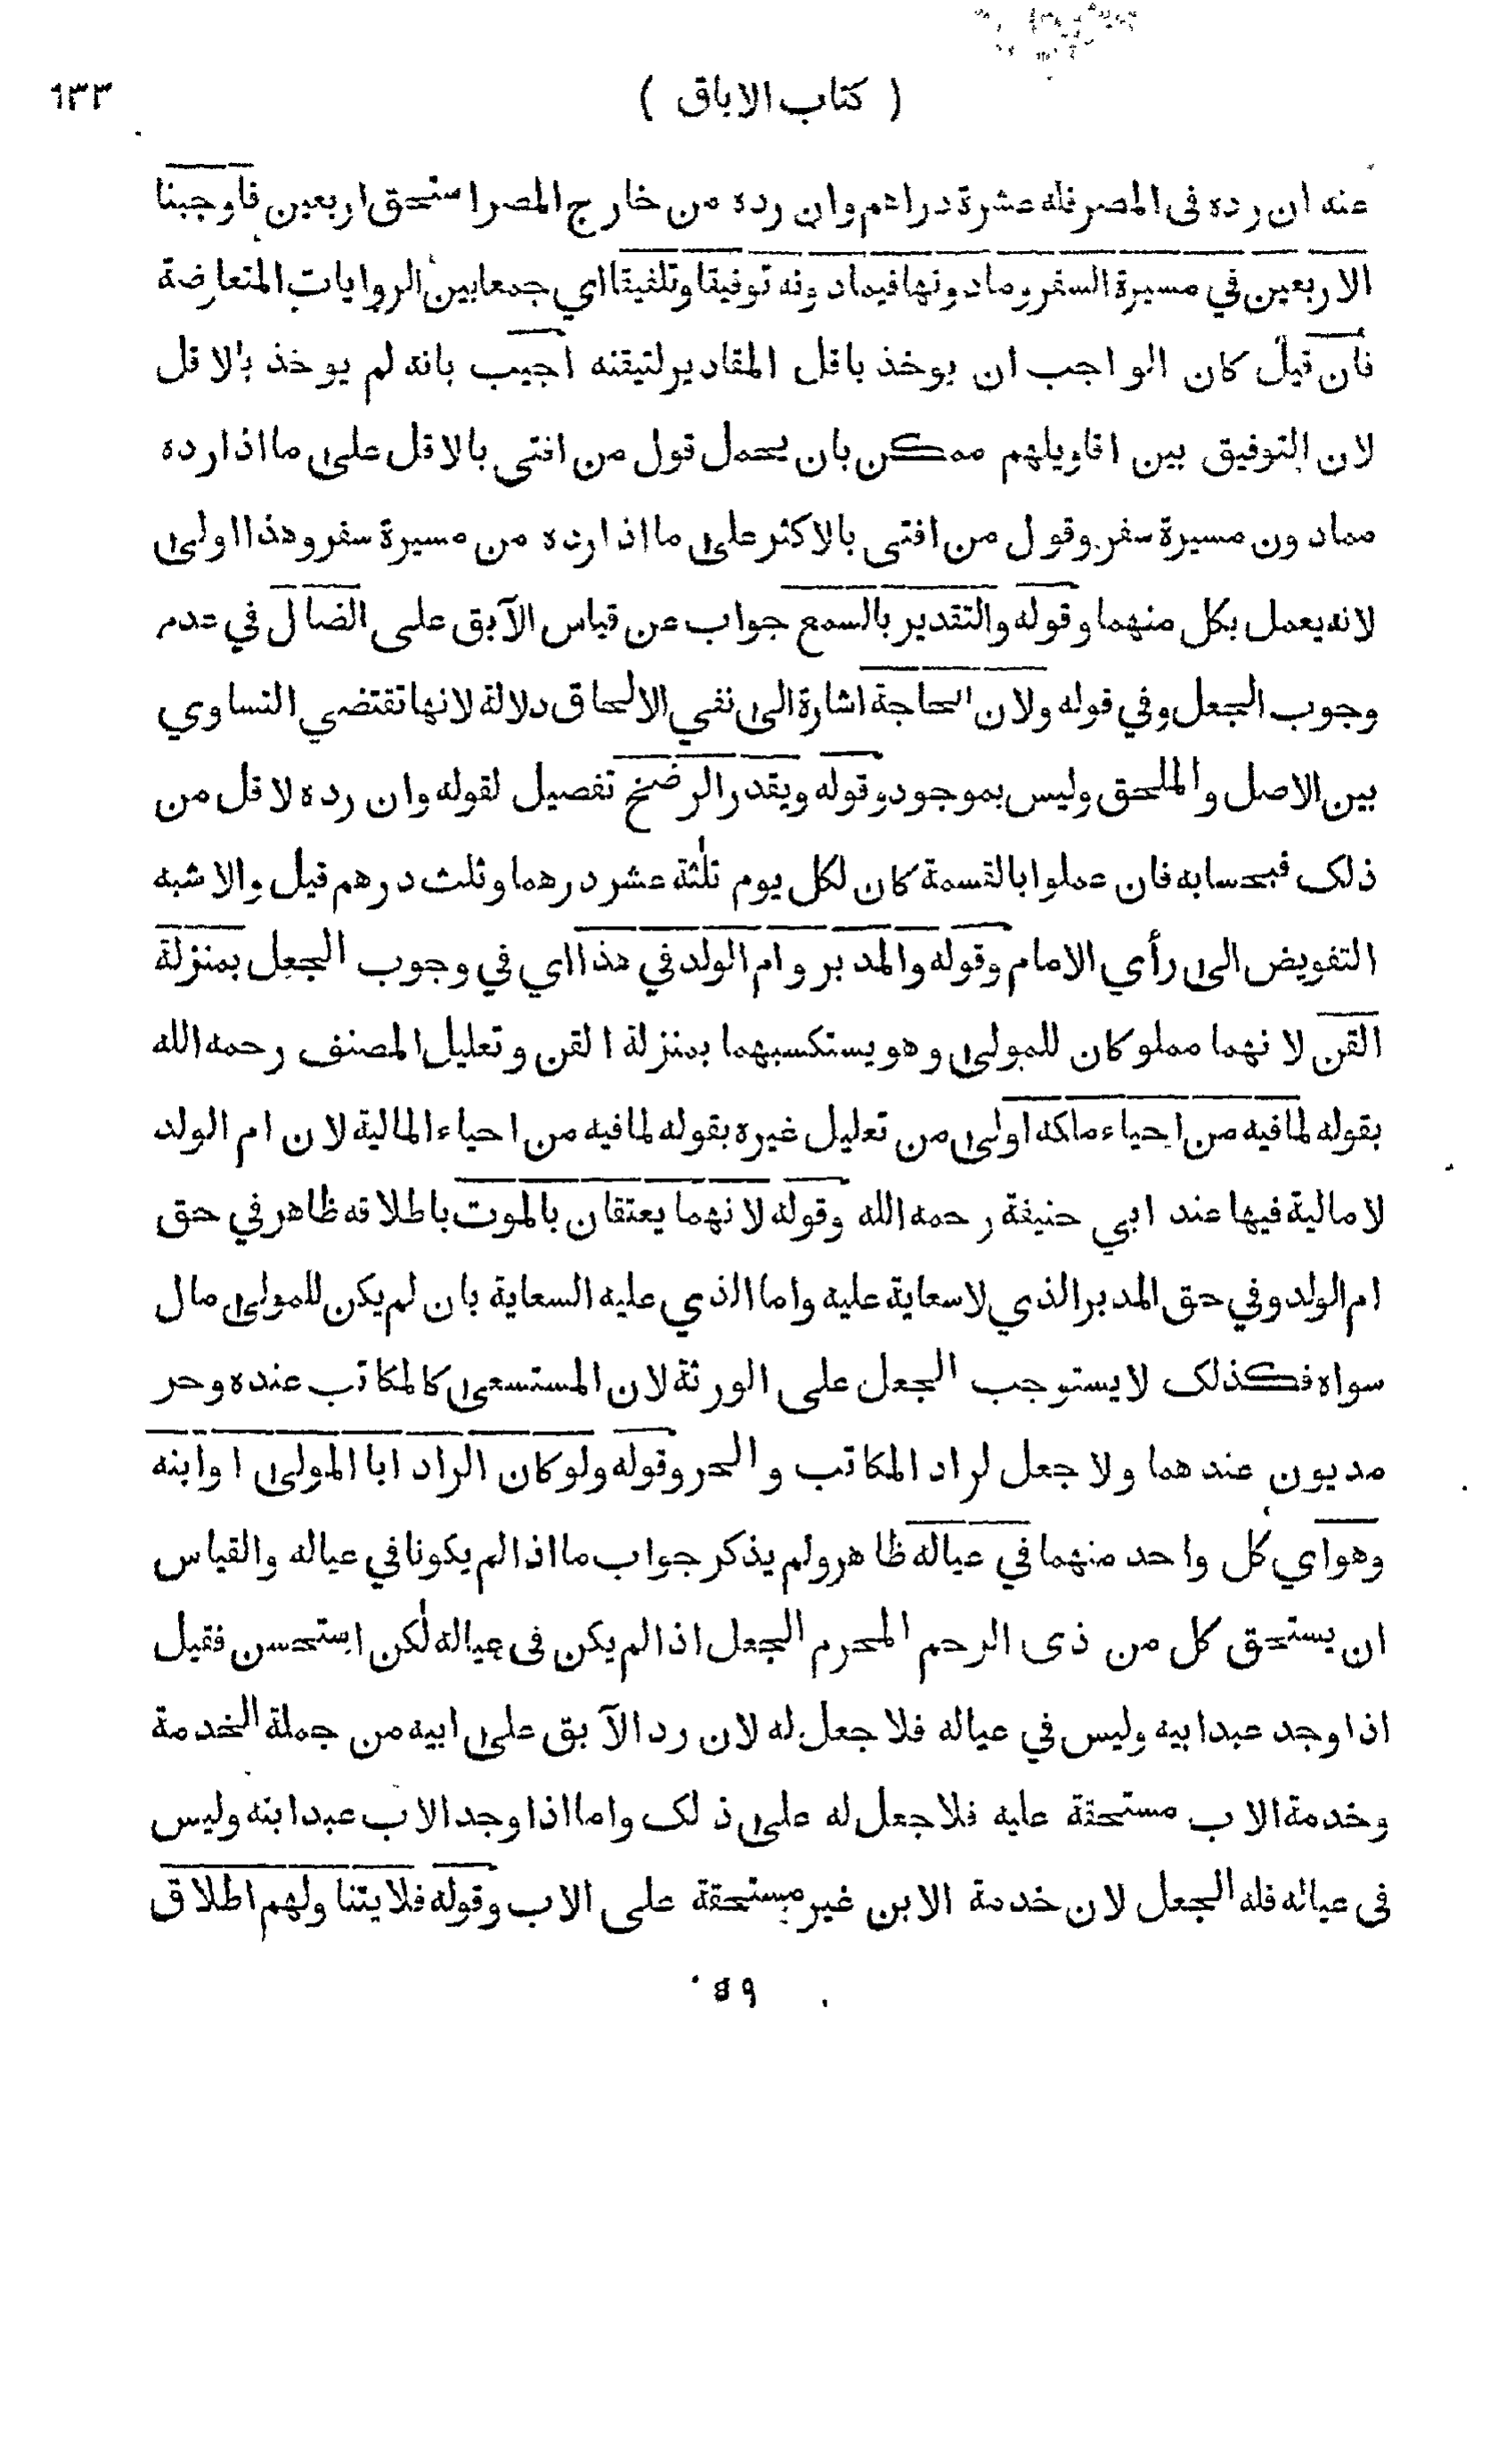 ( كتاب الاباق ) ٦٣٣
عنه ان رده فى المصر فله عشرة دراهم وان رده من خارج المصر استحق اربعين فاوجبنا
الاربعين في مسيرة السفر وما دونها فيما دونه توفيقا وتلفيقا اي جمعا بين الروايات المتعارضة
فان قيل كان الواجب ان يوخذ باقل المقادير لتيقنه اجيب بانه لم يوخذ بالاقل
لان التوفيق بين اقاويلهم ممكن بان يحمل قول من افتى بالاقل على ما اذا رده
مما دون مسيرة سفر وقول من افتى بالاكثر على ما اذا رده من مسيرة سفر وهذا اولى
لانه يعمل بكل منهما وقوله والتقدير بالسمع جواب عن قياس الآبق على الضال في عدم
وجوب الجعل وفي قوله ولان الحاجة اشارة الى نفي الالحاق دلالة لانها تقتضي التساوي
بين الاصل والملحق وليس بموجود وقوله ويقدر الرضخ تفصيل لقوله وان رده لاقل من
ذلك فبحسابه فان عملوا بالقسمة كان لكل يوم ثلٰثة عشر درهما وثلث درهم قيل والاشبه
التفويض الى رأي الامام وقوله والمدبر وام الولد في هذا اي في وجوب الجعل بمنزلة
القن لانهما مملوكان للمولى وهو يستكسبهما بمنزلة القن وتعليل المصنف رحمه الله
بقوله لما فيه من احياء ملكه اولى من تعليل غيره بقوله لما فيه من احياء المالية لان ام الولد
لا مالية فيها عند ابي حنيفة رحمه الله وقوله لانهما يعتقان بالموت باطلاقه ظاهر في حق
ام الولد وفي حق المدبر الذي لا سعاية عليه واما الذي عليه السعاية بان لم يكن للمولى مال
سواه فكذلك لا يستوجب الجعل على الورثة لان المستسعى كالمكاتب عنده وحر
مديون عندهما ولا جعل لراد المكاتب والحر وقوله ولو كان الراد ابا المولى او ابنه
وهو اي كل واحد منهما في عياله ظاهر ولم يذكر جواب ما اذا لم يكونا في عياله والقياس
ان يستحق كل من ذى الرحم المحرم الجعل اذا لم يكن فى عياله لٰكن استحسن فقيل
اذا وجد عبد ابيه وليس في عياله فلا جعل له لان رد الآبق على ابيه من جملة الخدمة
وخدمة الاب مستحقة عليه فلا جعل له على ذلك واما اذا وجد الاب عبد ابنه وليس
فى عياله فله الجعل لان خدمة الابن غير مستحقة على الاب وقوله فلا يتناولهم اطلاق